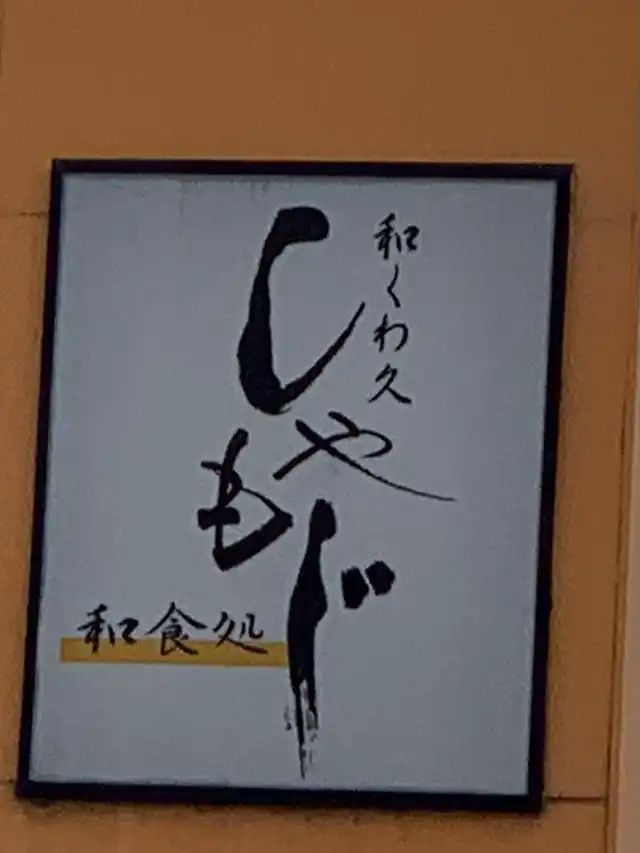 和くわ久
しゃもじ
和食処